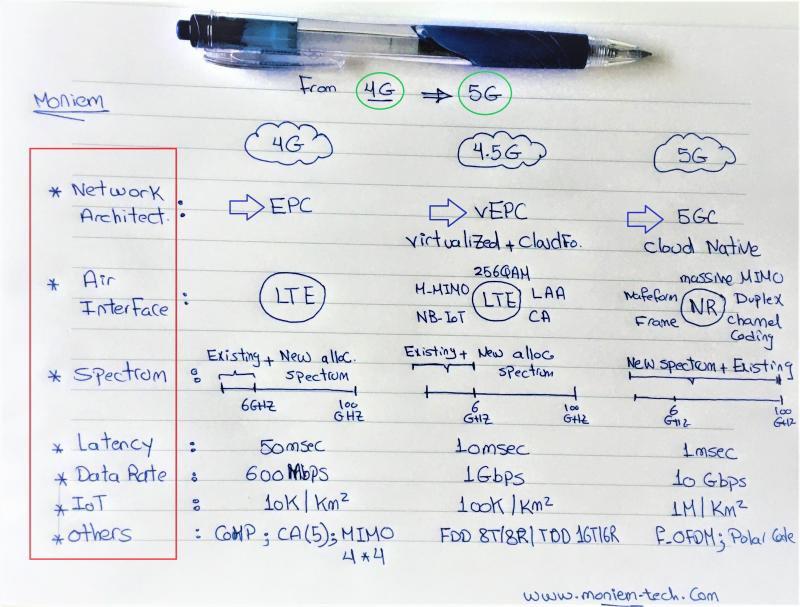 From 4G ⇒ 5G
Moniem
4G 4.5G 5G
* Network Architect. : ⇒ EPC ⇒ vEPC ⇒ 5GC
Virtualized + CloudFo. Cloud Native
* Air Interface : LTE
256QAM
M-MIMO LTE LAA
NB-IoT CA
massive MIMO
Waveform NR Duplex
Frame Channel
Coding
* Spectrum : Existing + New alloc. spectrum
6GHZ 100 GHZ
Existing + New alloc spectrum
6 GHZ 100 GHZ
New spectrum + Existing
6 GHZ 100 GHZ
* Latency : 50msec 10msec 1msec
* Data Rate : 600Mbps 1Gbps 10 Gbps
* IoT : 10K/Km² 100K/Km² 1M/Km²
* others : CoMP ; CA(5) ; MIMO 4*4 FDD 8T/8R/TDD 16T16R F_OFDM; Polar Code
www.moniem-tech.com